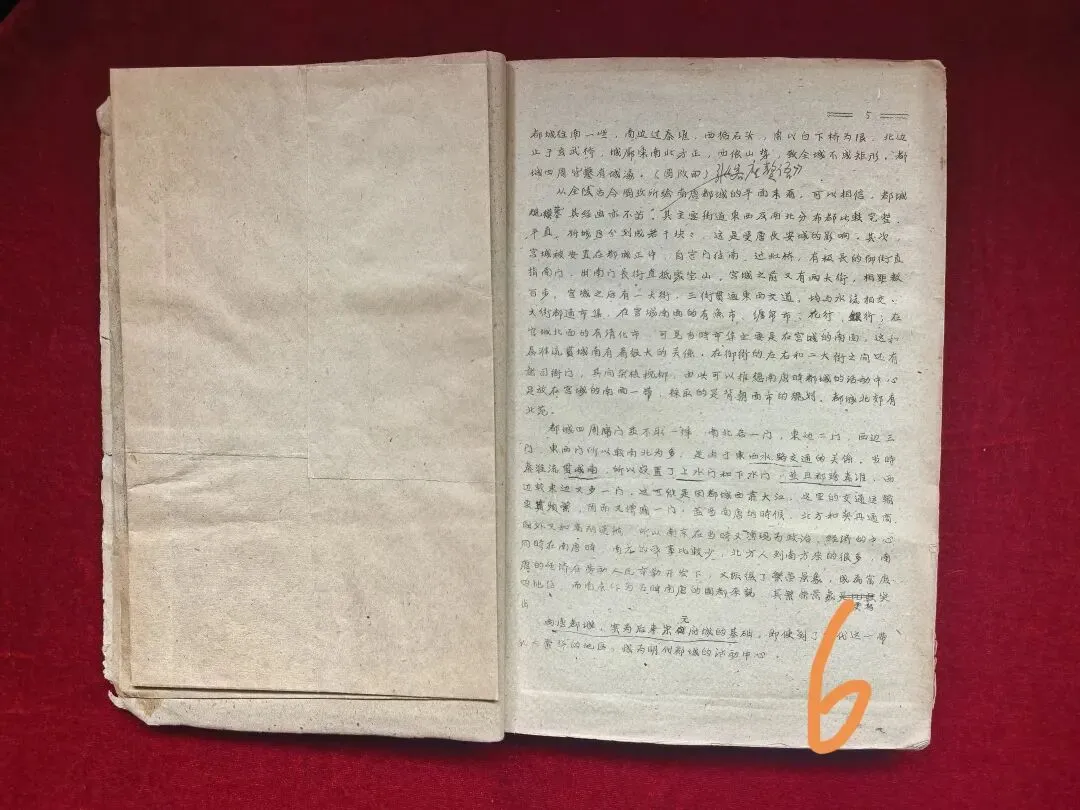 5
都城往南一些，南边过秦淮，西据石头，南以白下桥为限，北边
止于玄武桥，城廓东南北方正，西依山势，致全城不成矩形。都
城四周皆凿有城濠。（图版四）
从金陵古今图考所绘南唐都城的平面来看，可以相信，都城
规模 其经画亦不苟。其主要街道東西及南北分布都比较完整，
平直，将城区分划成若干块，这是受唐长安城的影响。其次，
宫城被安置在都城正中，自宫门往南，过虹桥，有极长的御街直
指南门，出南门長街直抵聚宝山，宫城之前又有两大街，相距数
百步，宫城之后有一大街，三街贯通東西交道，均与水流相交。
大街都通市集，在宫城南面的有鱼市，绸帛市，花行，银行；在
宫城北面的有清化市，可見当時市集主要是在宫城的南面，这和
秦淮流贯城南有着极大的关係。在御街的左右和二大街之间还有
各司衙门，其间杂植槐柳，由此可以推想南唐時都城的活动中心
是放在宫城的南面一带，採取的是背朝面市的规划。都城北郊有
北苑。
都城四周闢门並不取一律，南北各一门，東边二门，西边三
门，東西门所以較南北为多，是由于東西水路交通的关係，当時
秦淮流贯城南，所以設置了上水门和下水门，並且都跨秦淮，西
边较東边又多一门，这可能是因都城西靠大江，这里的交通运输
更其频繁，因而又增闢一门。盖当南唐的時候，北方和契丹通商，
国外又和高丽通航，所以南京在当時又 为政治，经濟的中心
同時在南唐時，南方的 事比较少，北方人到南方来的很多，南
唐的经济在劳动人民辛勤开发下，又 了繁荣景象，成为富庶
的地区，而南京作为五 南唐的国都来說，其繁荣景象 更為突
出
南唐都城，实为后来宋元府城的基础，即使到了 代这一带
 的地区，成为明代都城的活动中心。
6